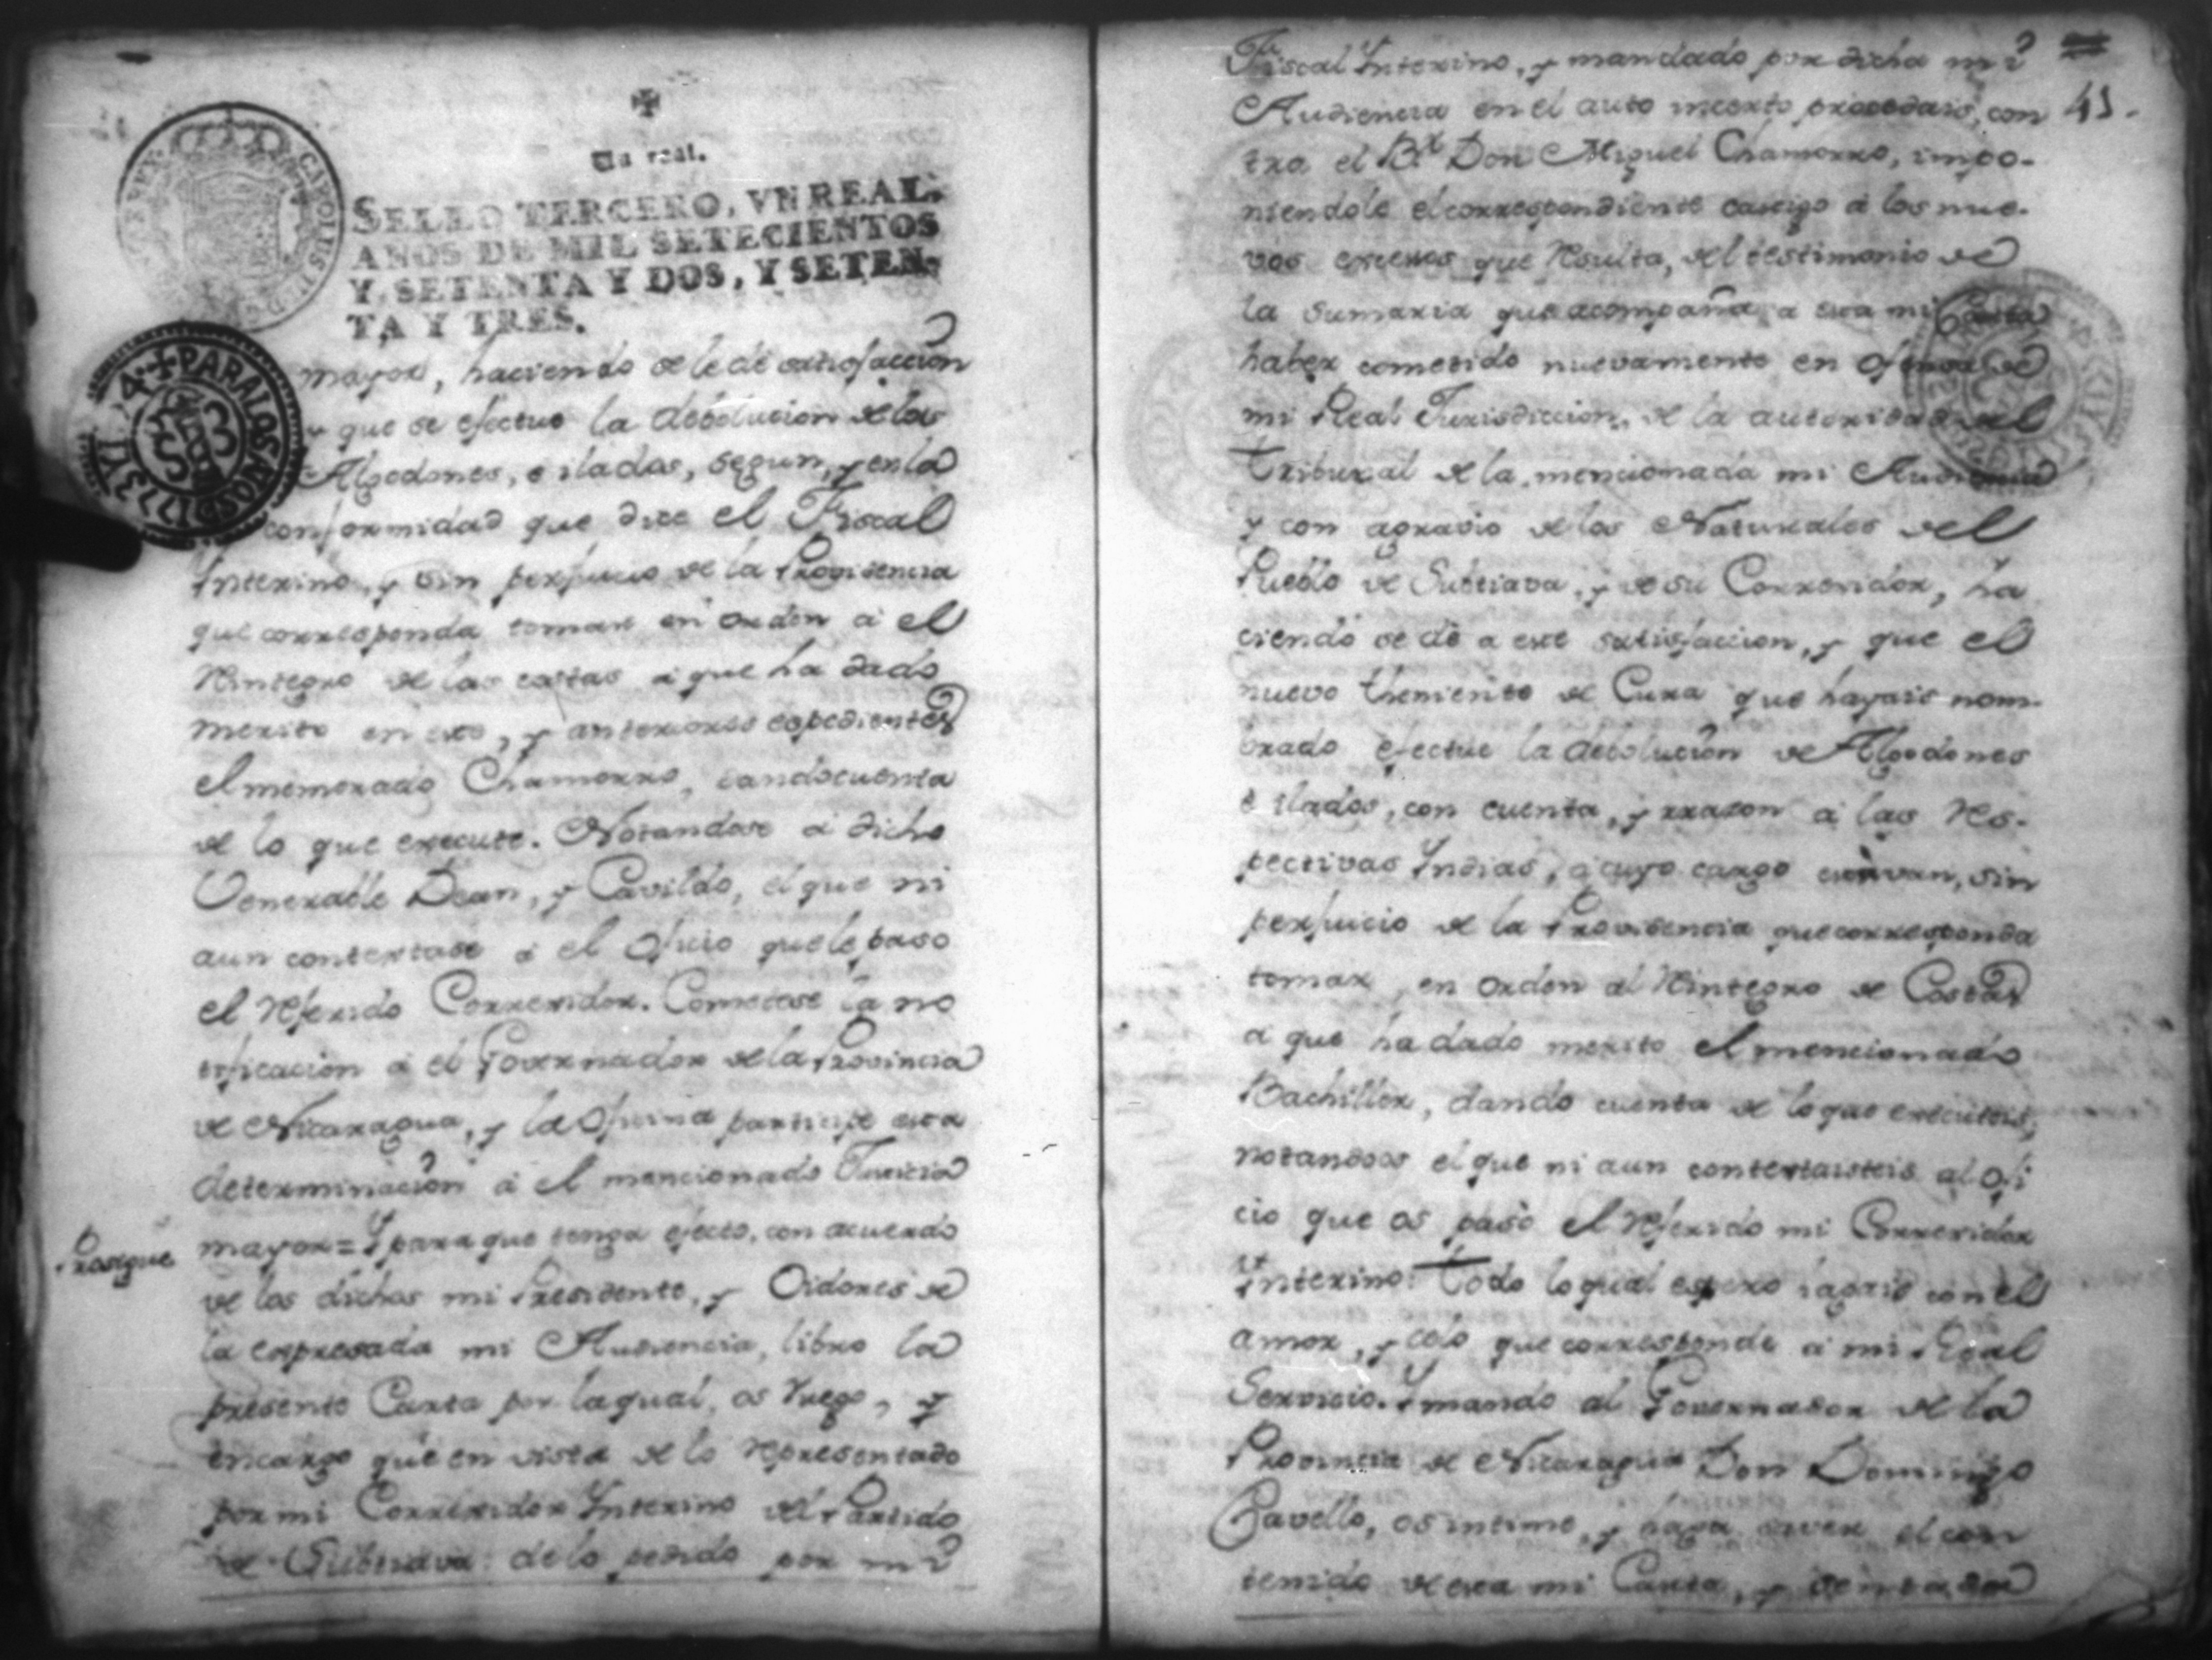 Un real.
SELLO TERCERO, VN REAL,
AÑOS DE MIL SETECIENTOS
Y SETENTA Y DOS, Y SETEN-
TA Y TRES.
CAROLUS III
PARA LOS AÑOS D 1773 YI 74
mayor, haciendo se le dé satisfaccion
y que se efectue la debolucion de los
Algodones, e ilados, segun, y en la
conformidad que dice el Fiscal
Interino, y sin perjuicio de la Providencia
que corresponda tomar en orden á el
Rintegro de las costas á que ha dado
merito en este, y anteriores espedientes
el memorado Chamorro, dando cuenta
de lo que execute. Notandose á dicho
Venerable Dean, y Cavildo, el que ni
aun contextase á el Oficio que le paso
el referido Correxidor. Cometese la no
tificacion á el Governador de la Provincia
de Nicaragua, y la Oficina participe esta
determinacion á el mencionado Justicia
Prosigue
mayor = Y para que tenga efecto, con acuerdo
de los dichos mi Presidente, y Oidores de
la expresada mi Audiencia, libro la
presente Carta por la qual, os ruego, y
encargo que en vista de lo representado
por mi Correxidor Interino del Partido
de Subtiava: de lo pedido por mi
41.
Fiscal Interino, y mandado por dicha mi
Audiencia en el auto inserto procedais, con
tra el Br Don Miguel Chamorro, impo-
niendole el correspondiente castigo á los nue-
vos excesos que resulta, del testimonio de
la sumaria que acompaña a esta mi Carta
haber cometido nuevamente en ofensa de
mi Real Jurisdiccion, de la autoridad del
Tribunal de la mencionada mi Audiencia
y con agravio de los Naturales del
Pueblo de Subtiava, y de su Correxidor, ha
ciendo se dé a este satisfaccion, y que el
nuevo theniente de Cura que hayais nom-
brado efectue la debolucion de Algodones
é ilados, con cuenta, y rrazon á las res-
pectivas Indias, á cuyo cargo estavan, sin
perjuicio de la Providencia que corresponda
tomar, en orden al Rintegro de Costas
a que ha dado merito el mencionado
Bachiller, dando cuenta de lo que executeis,
notandoos el que ni aun contextaisteis al ofi
cio que os pasó el referido mi Correxidor
Interino: Todo lo qual espero hagais con el
amor, y celo que corresponde á mi Real
Servicio. Y mando al Governador de la
Provincia de Nicaragua Don Domingo
Cavello, os intime, y haga saver el con
tenido de esta mi Carta, y